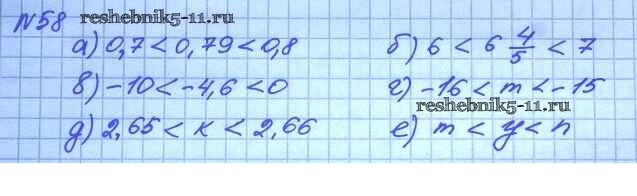 №58 reshebnik5-11.ru
а) 0,7 < 0,79 < 0,8 б) 6 < 6 4/5 < 7
в) -10 < -4,6 < 0 г) -16 < m < -15
reshebnik5-11.ru
д) 2,65 < к < 2,66 е) m < y < n